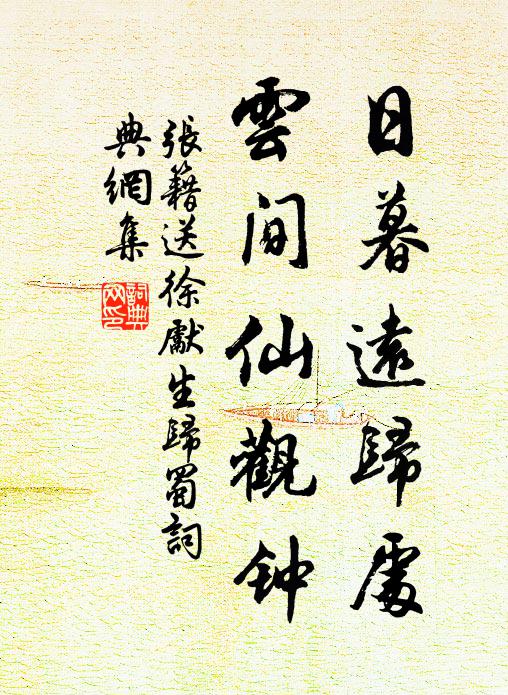 日暮遠歸處
雲间仙觀钟
張籍送徐獻生歸蜀詞
典網集
詞典
网印